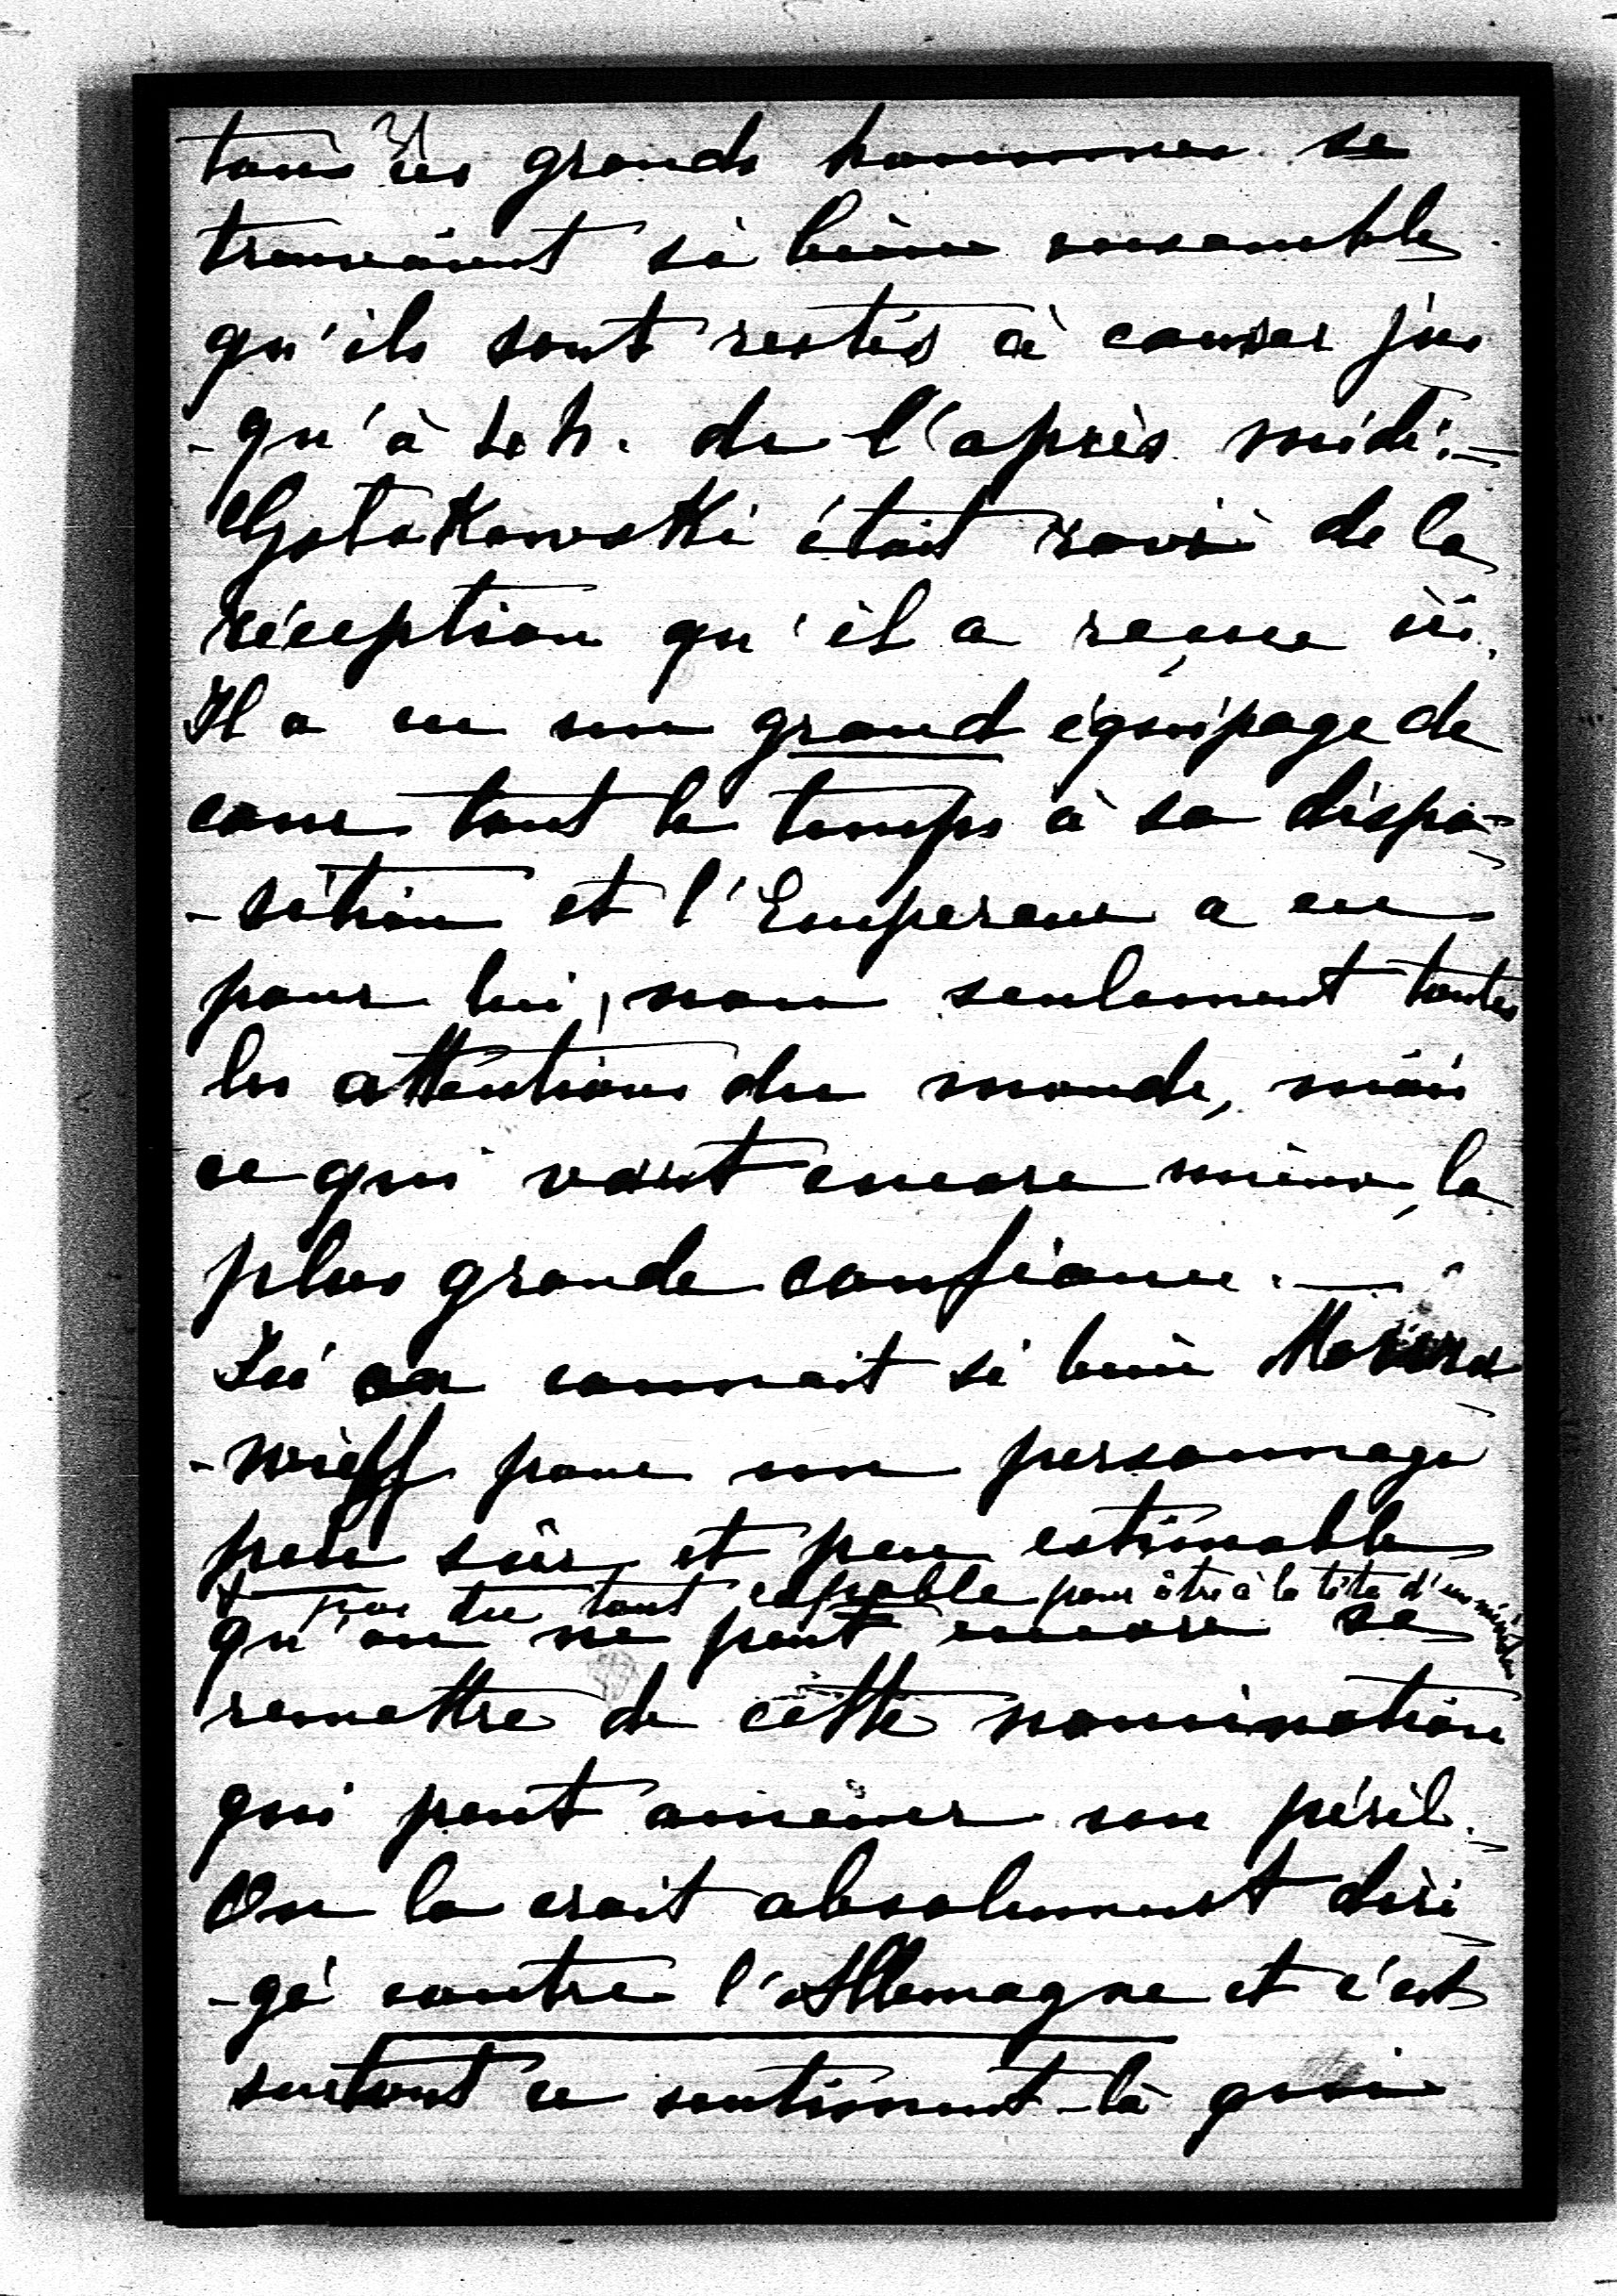 31
tous ces grands hommes se
trouvaient si bien ensemble
qu'ils sont restés à causer jus
-qu'à 4 h. de l'après midi. =
était ravi de la
réception qu'il a reçue ici.
Il a eu un grand équipage de
cour tout le temps à sa dispo-
-sition et l'Empereur a eu
pour lui, non seulement toutes
les attentions du monde, mais
ce qui vaut encore mieux, la
plus grande confiance. —
Ici on connait si bien Moura
-wieff pour un personnage
peu sûr et peu estimable
+ pas du tout capable pour être à la tête d'un ministère
qu'on ne peut encore se
remettre de cette nomination
qui peut amener un péril.
On le croit absolument diri
-gé contre l'Allemagne et c'est
surtout ce sentiment-là qui